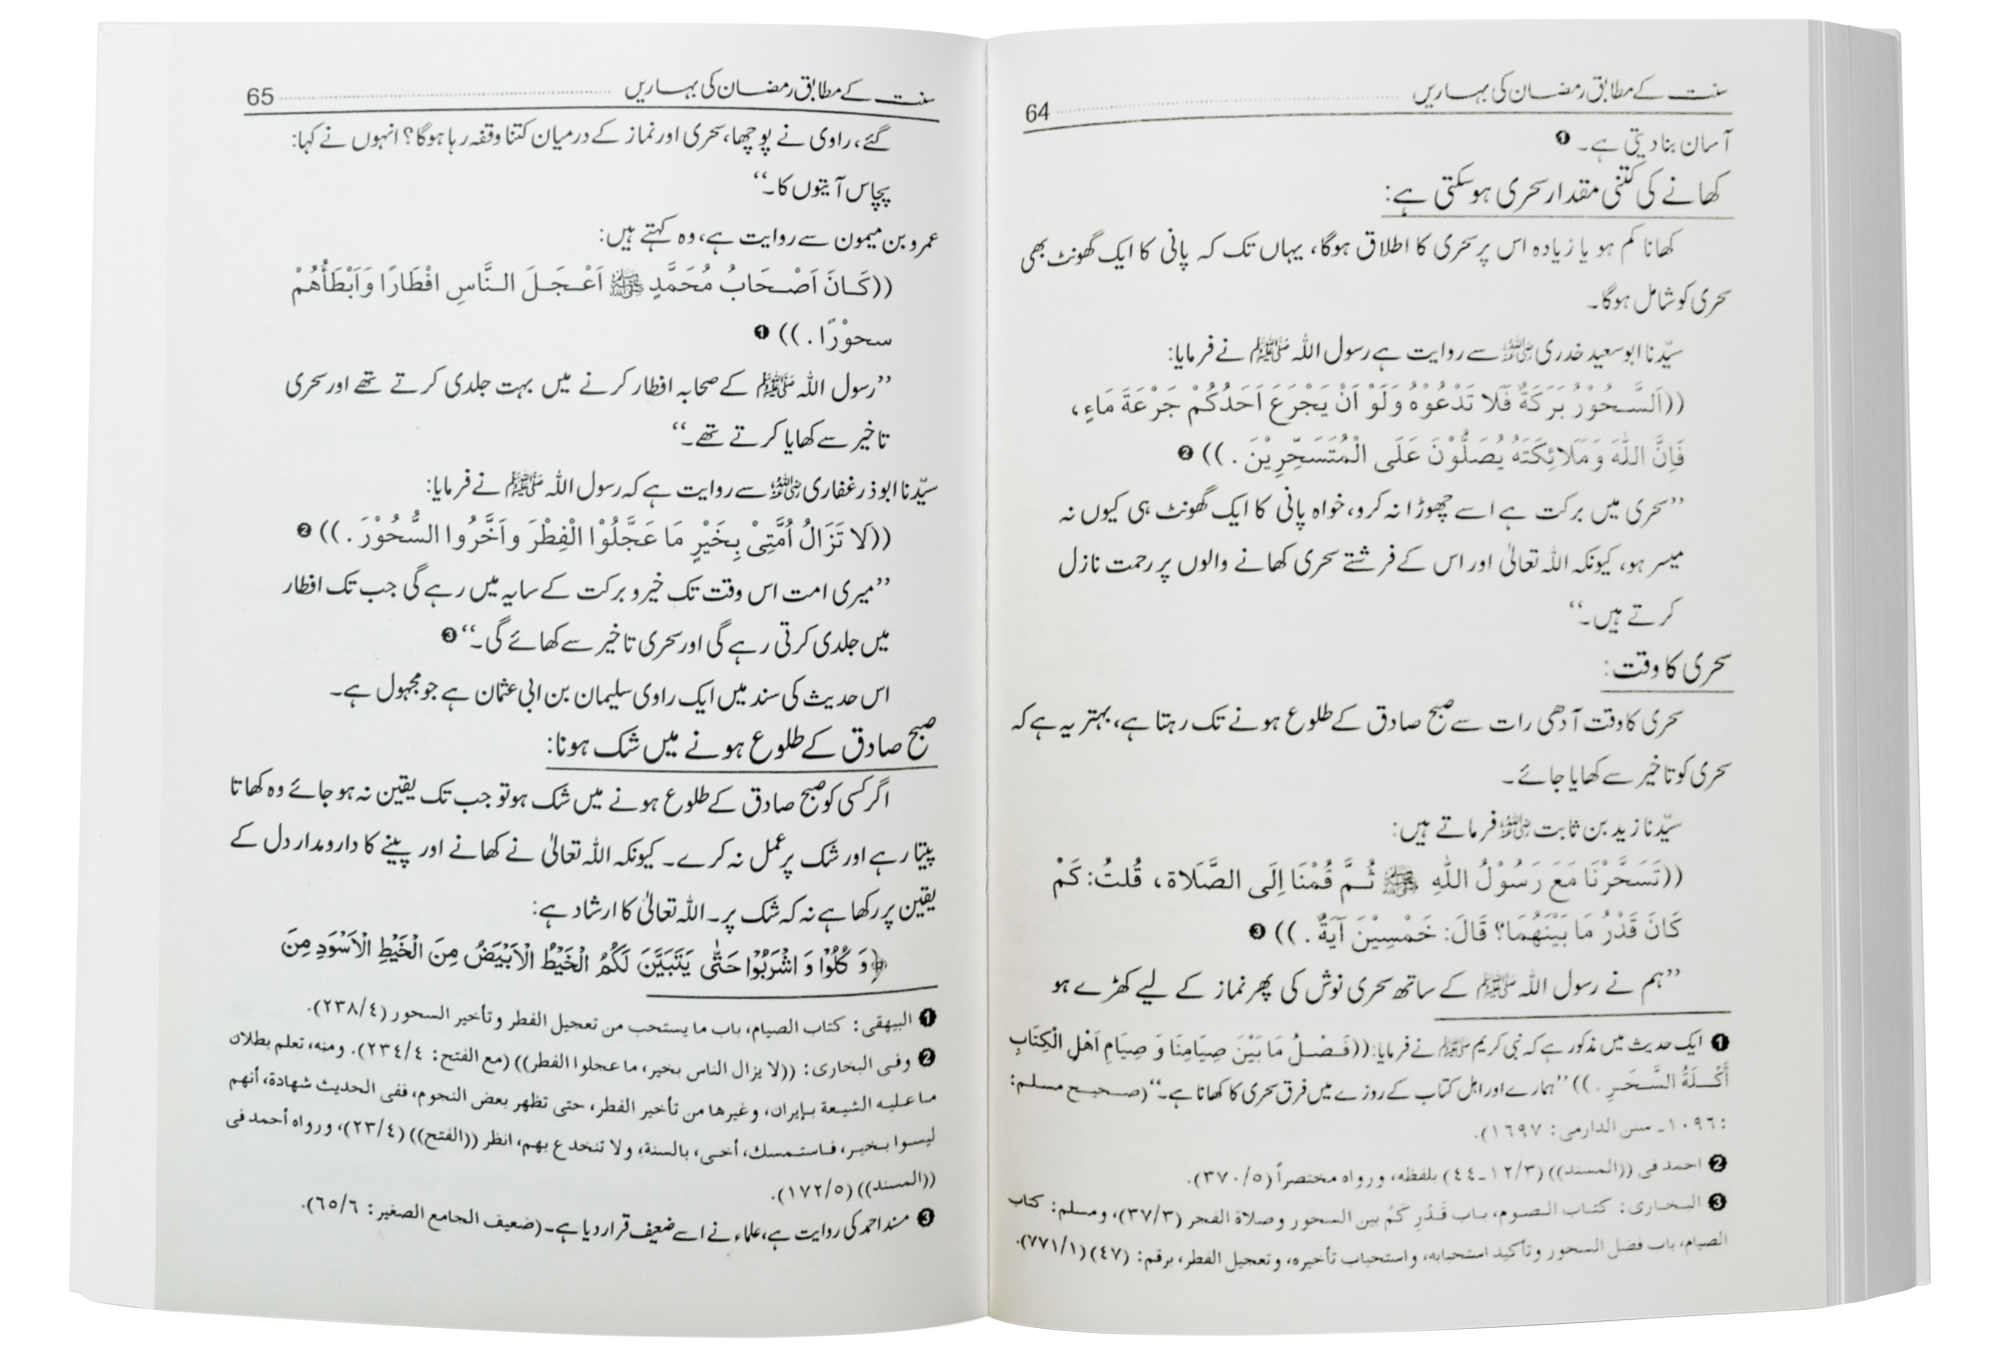 سنت کے مطابق رمضان کی بہاریں ........ 64
آسان بنا دیتی ہے۔ ❶
کھانے کی کتنی مقدار سحری ہوسکتی ہے:
کھانا کم ہو یا زیادہ اس پر سحری کا اطلاق ہوگا، یہاں تک کہ پانی کا ایک گھونٹ بھی
سحری کو شامل ہوگا۔
سیّدنا ابوسعید خدری رضی اللہ عنہ سے روایت ہے رسول اللہ ﷺ نے فرمایا:
((اَلسَّحُوْرُ بَرَكَةٌ فَلَا تَدْعُوْهُ وَلَوْ اَنْ يَجْرَعَ اَحَدُكُمْ جَرْعَةَ مَاءٍ،
فَاِنَّ اللّٰهَ وَمَلَائِكَتَهُ يُصَلُّوْنَ عَلَى الْمُتَسَحِّرِيْنَ.)) ❷
’’سحری میں برکت ہے اسے چھوڑا نہ کرو، خواہ پانی کا ایک گھونٹ ہی کیوں نہ
میسر ہو، کیونکہ اللہ تعالیٰ اور اس کے فرشتے سحری کھانے والوں پر رحمت نازل
کرتے ہیں۔‘‘
سحری کا وقت:
سحری کا وقت آدھی رات سے صبح صادق کے طلوع ہونے تک رہتا ہے، بہتر یہ ہے کہ
سحری کو تاخیر سے کھایا جائے۔
سیّدنا زید بن ثابت رضی اللہ عنہ فرماتے ہیں:
((تَسَحَّرْنَا مَعَ رَسُوْلُ اللّٰهِ ﷺ ثُمَّ قُمْنَا اِلَى الصَّلَاة، قُلتُ: كَمْ
كَانَ قَدْرُ مَا بَيْنَهُمَا؟ قَالَ: خَمْسِيْنَ آيَةً.)) ❸
’’ہم نے رسول اللہ ﷺ کے ساتھ سحری نوش کی پھر نماز کے لیے کھڑے ہو
❶ ایک حدیث میں مذکور ہے کہ نبی کریم ﷺ نے فرمایا: ((فَصْلُ مَا بَيْنَ صِيَامِنَا وَ صِيَامِ اَهْلِ الْكِتَابِ
أَكْلَةُ السَّحَرِ.)) ’’ہمارے اور اہل کتاب کے روزے میں فرق سحری کا کھانا ہے۔‘‘ (صحیح مسلم:
:١٠٩٦۔ سنن الدارمی: ١٦٩٧).
❷ احمد فی ((المسند)) (١٢/٣۔٤٤) بلفظه، ورواه مختصراً (٣٧٠/٥).
❸ البخاری: کتاب الصوم، باب قَدْرِ كَمْ بین السحور وصلاة الفجر (٣٧/٣)، ومسلم: کتاب
الصیام، باب فضل السحور وتأکید استحبابه، واستحباب تأخیره، وتعجیل الفطر، برقم: (٤٧) (٧٧١/١).
سنت کے مطابق رمضان کی بہاریں ........ 65
گئے، راوی نے پوچھا، سحری اور نماز کے درمیان کتنا وقفہ رہا ہوگا؟ انہوں نے کہا:
پچاس آیتوں کا۔‘‘
عمرو بن میمون سے روایت ہے، وہ کہتے ہیں:
((كَانَ اَصْحَابُ مُحَمَّدٍ ﷺ اَعْجَلَ النَّاسِ افْطَارًا وَاَبْطَأُهُمْ
سحوْرًا.)) ❶
’’رسول اللہ ﷺ کے صحابہ افطار کرنے میں بہت جلدی کرتے تھے اور سحری
تاخیر سے کھایا کرتے تھے۔‘‘
سیّدنا ابوذر غفاری رضی اللہ عنہ سے روایت ہے کہ رسول اللہ ﷺ نے فرمایا:
((لَا تَزَالُ اُمَّتِىْ بِخَيْرٍ مَا عَجَّلُوْا الْفِطْرَ وأَخَّرُوا السُّحُوْرَ.)) ❷
’’میری امت اس وقت تک خیر و برکت کے سایہ میں رہے گی جب تک افطار
میں جلدی کرتی رہے گی اور سحری تاخیر سے کھائے گی۔‘‘ ❸
اس حدیث کی سند میں ایک راوی سلیمان بن ابی عثمان ہے جو مجہول ہے۔
صبح صادق کے طلوع ہونے میں شک ہونا:
اگر کسی کو صبح صادق کے طلوع ہونے میں شک ہو تو جب تک یقین نہ ہو جائے وہ کھاتا
پیتا رہے اور شک پر عمل نہ کرے۔ کیونکہ اللہ تعالیٰ نے کھانے اور پینے کا دارومدار دل کے
یقین پر رکھا ہے نہ کہ شک پر۔ اللہ تعالیٰ کا ارشاد ہے:
﴿وَ كُلُوْا وَ اشْرَبُوْا حَتّٰى يَتَبَيَّنَ لَكُمُ الْخَيْطُ الْاَبْيَضُ مِنَ الْخَيْطِ الْاَسْوَدِ مِنَ
❶ البیهقی: کتاب الصیام، باب ما یستحب من تعجیل الفطر وتأخیر السحور (٢٣٨/٤).
❷ وفی البخاری: ((لا یزال الناس بخیر، ما عجلوا الفطر)) (مع الفتح: ٢٣٤/٤). ومنه، تعلم بطلان
ما علیه الشیعة بإیران، وغیرها من تأخیر الفطر، حتی تظهر بعض النجوم، ففی الحدیث شهادة، أنهم
لیسوا بخیر، فاستمسك، أخی، بالسنة، ولا تنخدع بهم، انظر ((الفتح)) (٢٣/٤)، ورواه أحمد فی
((المسند)) (١٧٢/٥).
❸ مسند احمد کی روایت ہے، علماء نے اسے ضعیف قرار دیا ہے۔ (ضعیف الجامع الصغیر: ٦٥/٦).